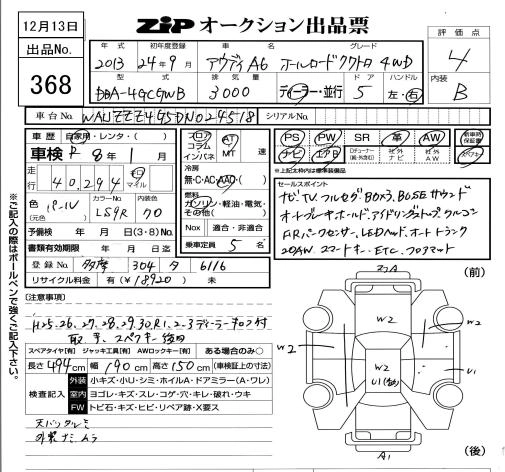 12月13日
ZiP オークション出品票
出品No.
368
年式 初年度登録 車名 グレード
2013 24年9月 アウディ A6 オールロードクワトロ 4WD
型式 排気量 ドア ハンドル
DBA-4GCGWB 3000 ディーラー・並行 5 左・右
評価点
4
内装
B
車台No. WAUZZZ4G5DN024518 シリアルNo.
車歴 自家用・レンタ・( )
車検 R 8年 1月
走行 40,294 キロ マイル
色 (元色) パール カラーNo. LS9R 内装 70
予備検 年 月 日 (3・8) No.
書類有効期限 年 月 日迄
フロア コラム インパネ AT MT 速
冷房 無・AC・AAC・( )
燃料 ガソリン・軽油・電気・その他( )
Nox 適合・非適合
乗車定員 5 名
登録No. 多摩 304 タ 6116
リサイクル料金 有(¥18,920) 未
PS PW SR 革 AW 新車時保証書
ナビ エアB TVチューナー(純・社外含) 社外ナビ 社外AW スペアキー
※上記太枠内は標準装備品
セールスポイント
ナビTV. フルセグ BOSE サウンド
オートブレーキホールド、アイドリングストップ、クルコン
FRパークセンサー、LEDヘッド、オートトランク
20AW. スマートキー、ETC、フロアマット
(注意事項)
H25.26.27.28.29.30.R1.2.3 ディーラー
取、スペアキー後日
スペアタイヤ[有] ジャッキ工具[有] AWロックキー[有] ある場合のみ○
長さ494cm 幅190cm 高さ150cm (車検証上の寸法)
検査記入
外装 小キズ・小U・シミ・ホイルA・ドアミラー(A・ワレ)
室内 ヨゴレ・キズ・スレ・コゲ・穴・キレ・破れ・ウキ
FW トビ石・キズ・ヒビ・リペア跡・X要ス
天バリタルミ
外装
※ご記入の際はボールペンで強くご記入下さい。
(前)
A1
W2
W2
W2
W2
U1
U1
A1
(後)